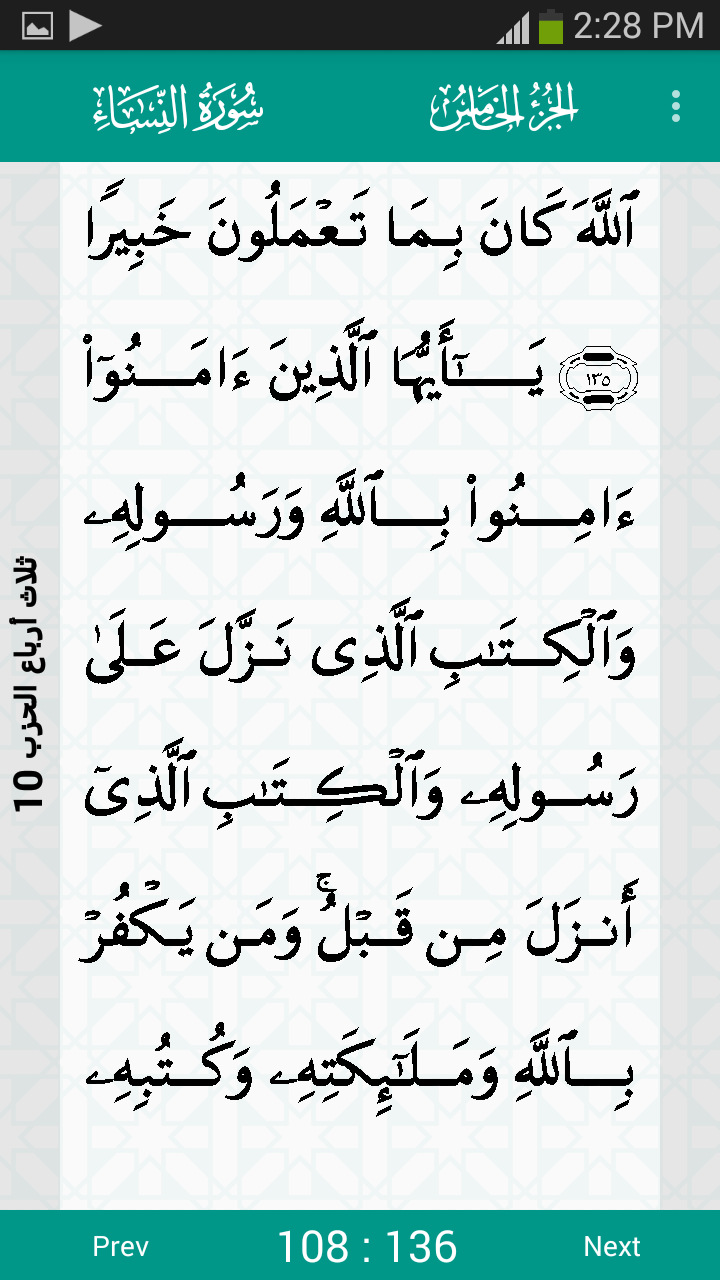 2:28 PM
سُورَةُ النِّسَاءِ
الجُزْءُ الخَامِسُ
ٱللَّهَ كَانَ بِمَا تَعْمَلُونَ خَبِيرًا
١٣٥ يَـٰٓأَيُّهَا ٱلَّذِينَ ءَامَنُوٓا۟
ءَامِنُوا۟ بِٱللَّهِ وَرَسُولِهِۦ
وَٱلْكِتَـٰبِ ٱلَّذِى نَزَّلَ عَلَىٰ
رَسُولِهِۦ وَٱلْكِتَـٰبِ ٱلَّذِىٓ
أَنزَلَ مِن قَبْلُ ۚ وَمَن يَكْفُرْ
بِٱللَّهِ وَمَلَـٰٓئِكَتِهِۦ وَكُتُبِهِۦ
ثلاث أرباع الحزب 10
Prev 108 : 136 Next